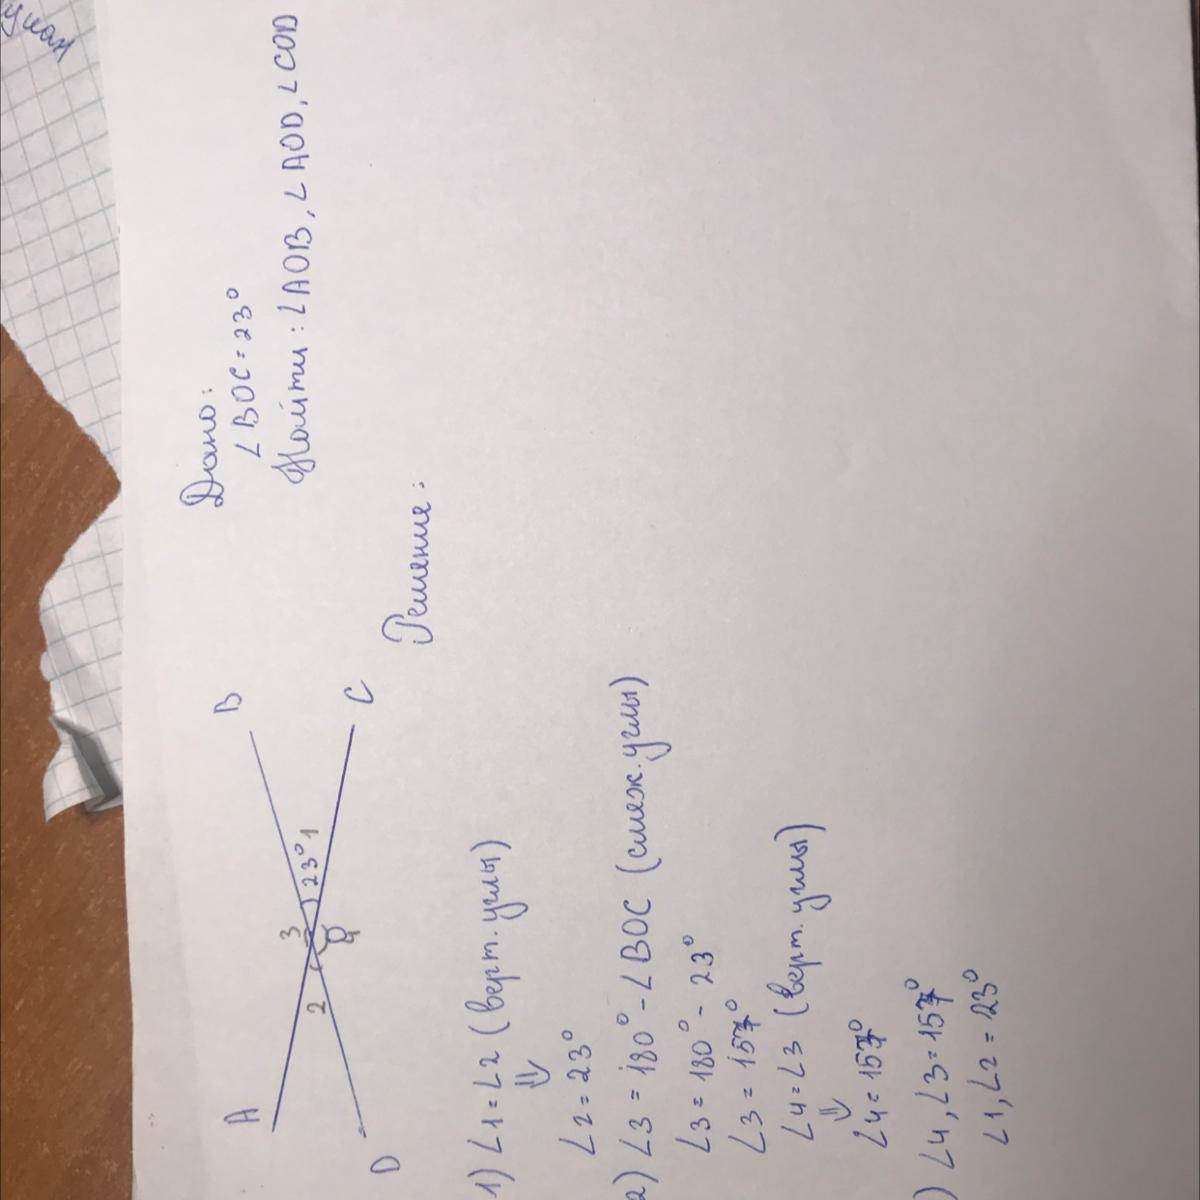 Дано:
∠BOC = 23°
Найти: ∠AOB, ∠AOD, ∠COD
A
B
C
D
2
3
23° 1
4
Решение:
1) ∠1 = ∠2 (верт. углы)
⇓
∠2 = 23°
2) ∠3 = 180° - ∠BOC (смеж. углы)
∠3 = 180° - 23°
∠3 = 157°
∠4 = ∠3 (верт. углы)
⇓
∠4 = 157°
) ∠4, ∠3 = 157°
∠1, ∠2 = 23°